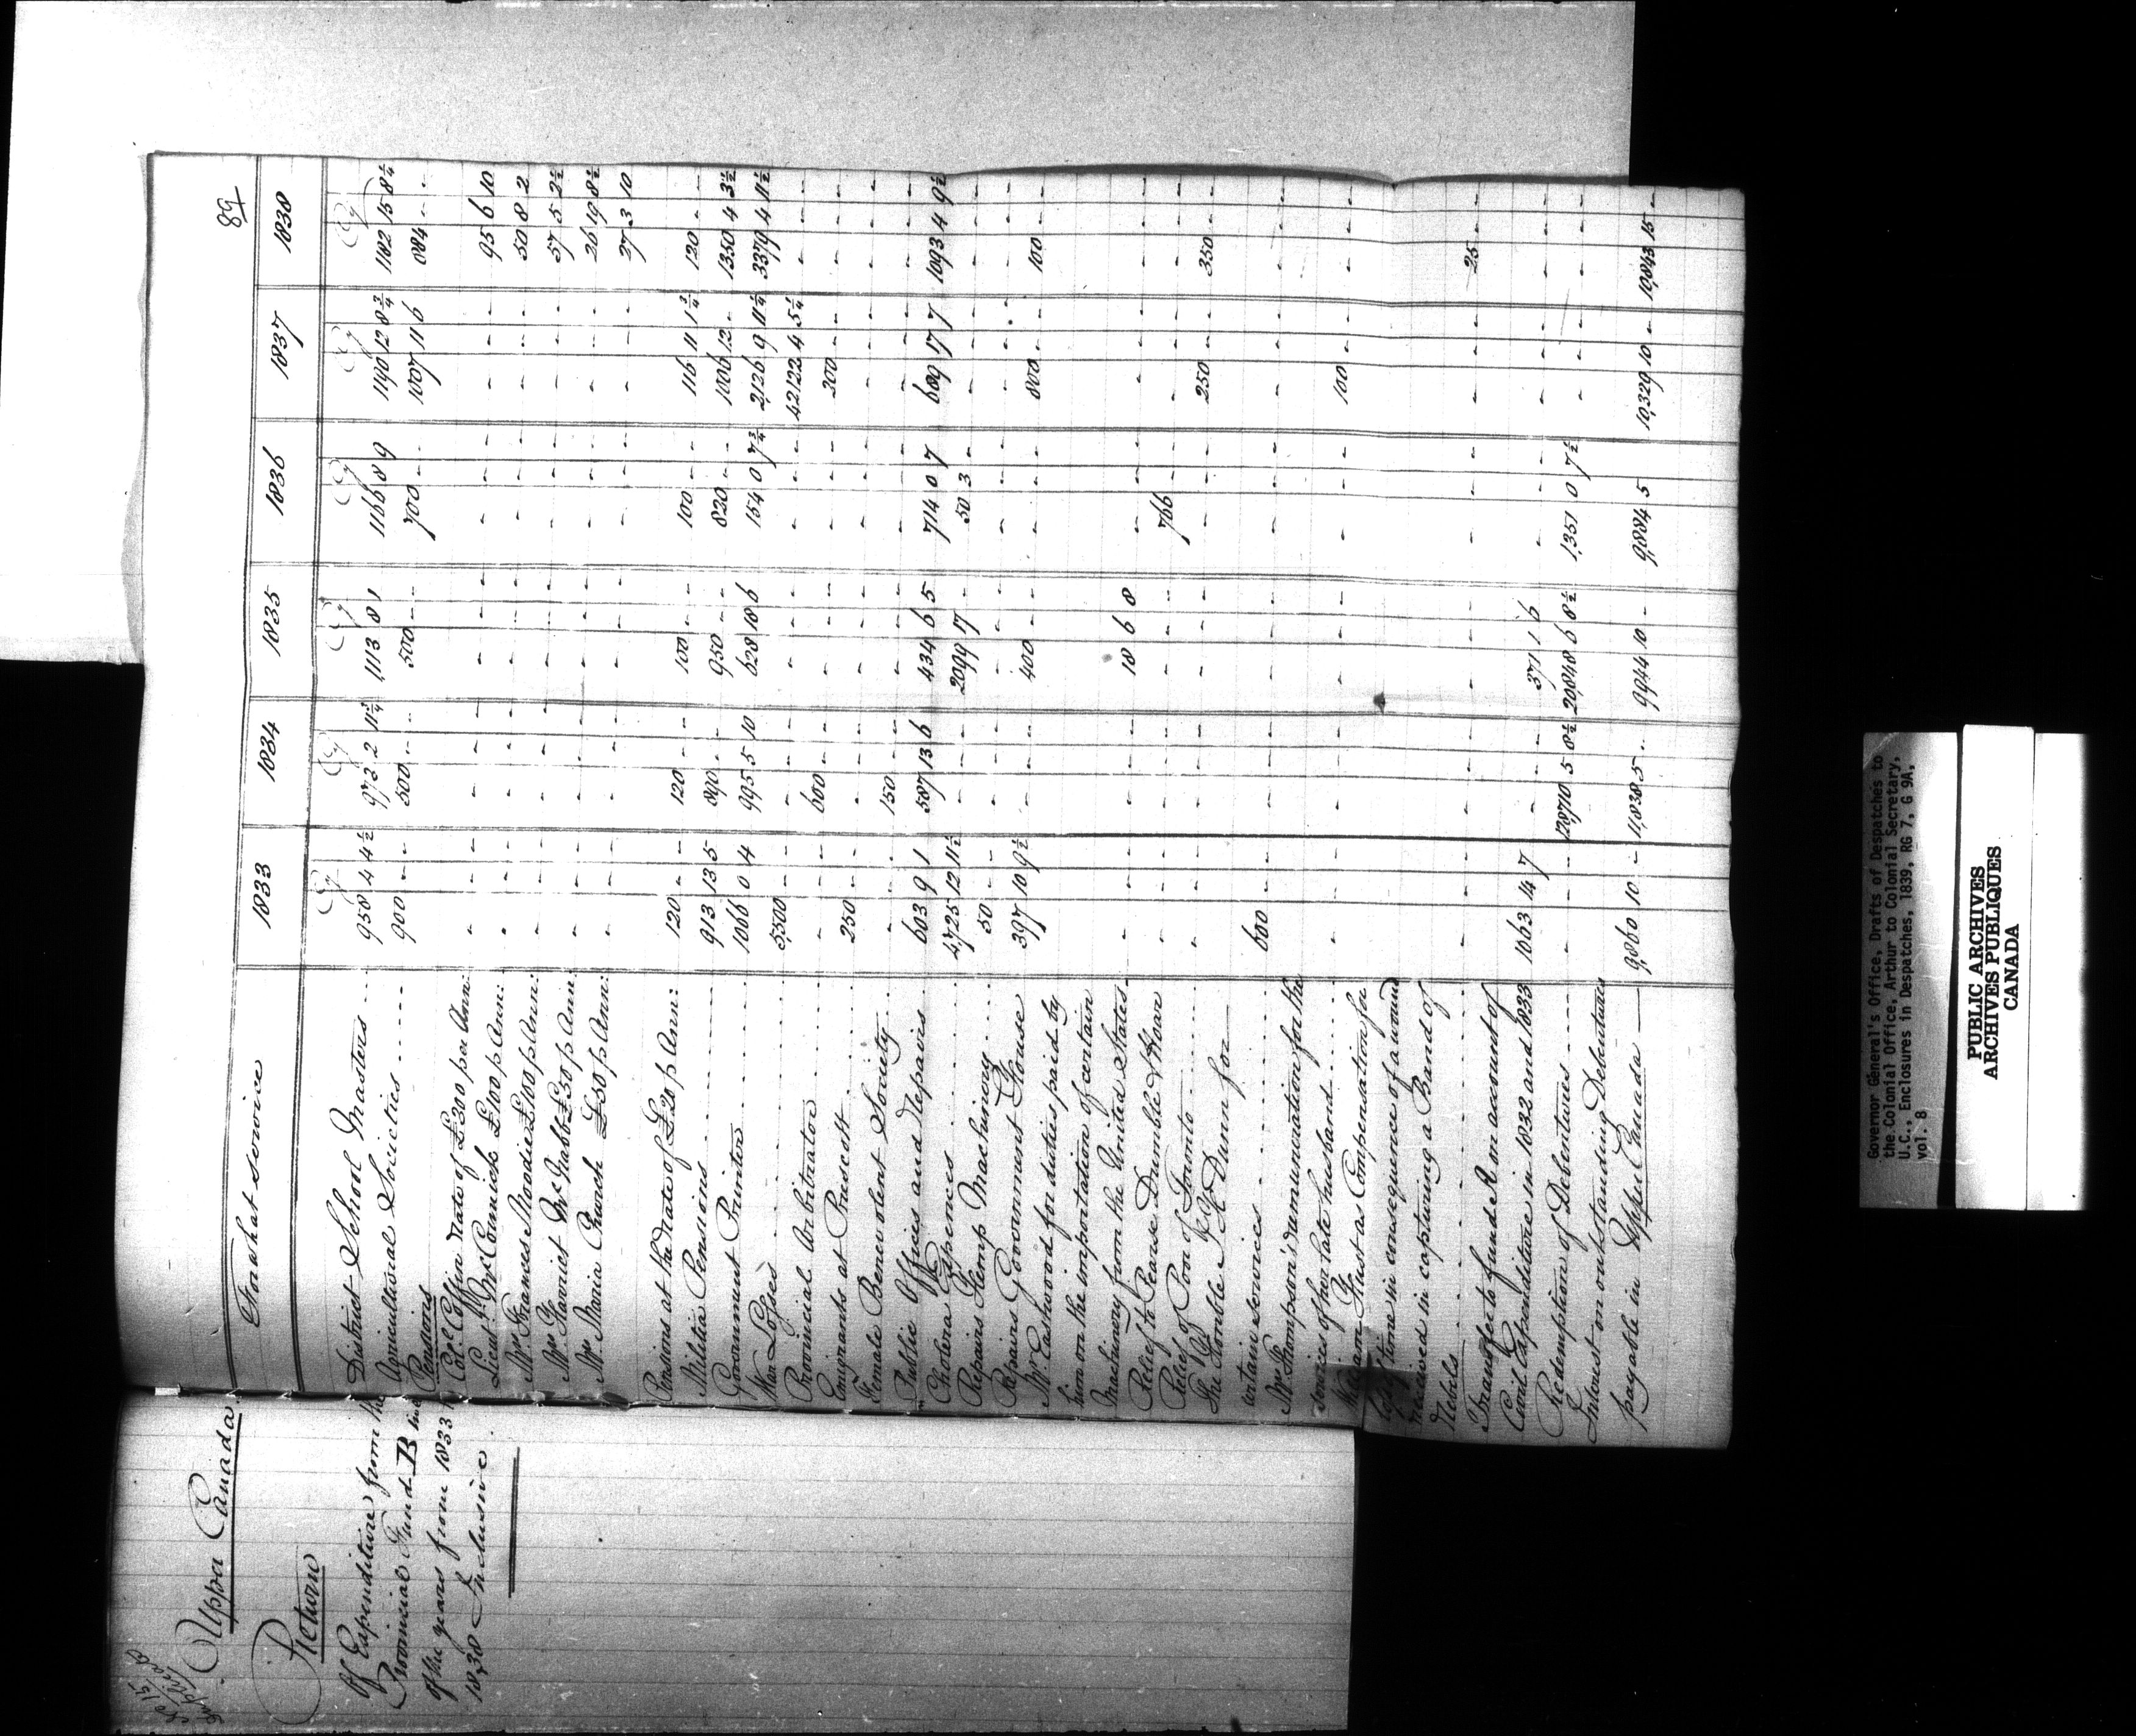 89
For what service 1833 1834 1835 1836 1837 1838
Cy Cy Cy Cy Cy Cy
District School Masters 958 4 4½ 973 2 11¾ 1,113 8 1 1166 8 9 1190 12 8¾ 1182 15 8¼
Agricultural Societies 900 - - 500 - - 500 - - 700 - - 1007 11 6 884 - -
Pensions
Col. Coffin rate of £300 per Ann: - - - - - 95 6 10
Lieut. McCormick £100 p Ann: - - - - - 50 8 2
Mrs Frances Moodie £100 p Ann: - - - - - 57 5 2½
Mrs Harriet McNabb £50 p Ann: - - - - - 26 19 8½
Mrs Maria Church £50 p Ann: - - - - - 27 3 10
Pensions at the rate of £20 p Ann: 120 - - 120 - - 100 - - 100 - - 116 11 1¾ 120 - -
Militia Pensions 913 13 5 890 - - 950 - - 820 - - 1006 12 - 1350 4 3½
Government Printer 1066 0 4 995 5 10 628 18 6 154 0 7¾ 2,126 9 11¼ 3379 4 11½
War Losses 5,500 - - - - - 42122 4 5¼ -
Provincial Arbitrator - 600 - - - - 200 - - -
Emigrants at Prescott 250 - - - - - - -
Female Benevolent Society - 150 - - - - - -
Public Offices and Repairs 603 9 1 587 13 6 434 6 5 714 0 7 689 17 7 1093 4 9½
Cholera Expences 4,725 12 11½ - 2099 17 - 50 3 - - -
Repairs Hemp Machinery 50 - - - - - - -
Repairs Government House 397 10 9½ - 400 - - - 800 - - 100 - -
Mr Eastwood for duties paid by
him on the importation of certain
Machinery from the United States - - 18 6 8 - - -
Relief to Pearse Dumble & Hoar - - - 766 - - - -
Relief of Poor of Toronto - - - - 250 - - 350 - -
The Honble J. H. Dunn for
certain services 600 - - - - - - -
Mrs Thompson's remuneration for the
services of her late husband - - - - 100 - - -
William Hust as Compensation for
loss of time in consequence of a wound
received in capturing a Band of
Rebels - - - - - 25 - -
Transfer to fund A on account of
Civil Expenditure in 1832 and 1833 1063 14 7 - 371 1 6 - - -
Redemption of Debentures - 128710 5 8½ 20848 6 8½ 1,351 0 7½ - -
Interest on outstanding Debentures
payable in Upper Canada 9,860 10 - 11,838 5 - 9944 10 - 9,884 5 - 10,329 10 - 10,843 15 -
Upper Canada
Return
Of Expenditure from the
Provincial Fund B
of the years from 1833
1838 Inclusive.
Governor General's Office, Drafts of Despatches to
the Colonial Office, Arthur to Colonial Secretary,
U.C., Enclosures in Despatches, 1839, RG 7, G 9A,
vol. 8
PUBLIC ARCHIVES
ARCHIVES PUBLIQUES
CANADA